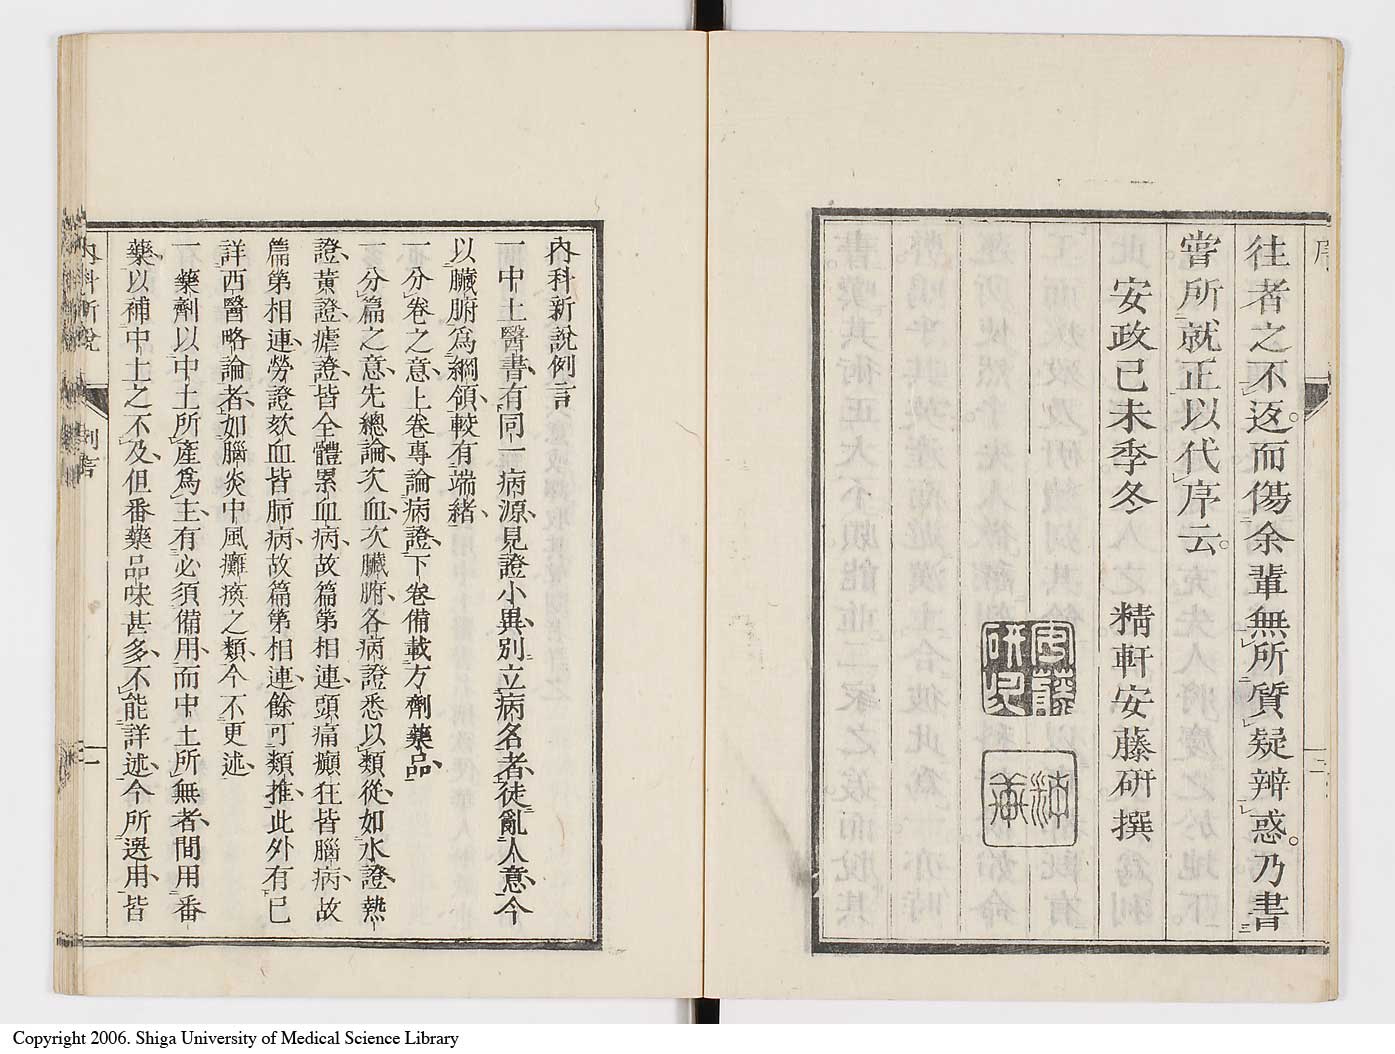 序
往者之不返而傷余輩無所質疑辨惑乃書
嘗所就正以代序云
安政己未季冬　精軒安藤研撰
內科新說例言
一中土醫書有同一病源見證小異別立病名者徒亂人意今
以臟腑爲綱領較有端緒
一分卷之意上卷專論病證下卷備載方劑藥品
一分篇之意先總論次血次臟腑各病證悉以類從如水證熱
證黃證瘧證皆全體累血病故篇第相連頭痛癲狂皆腦病故
篇第相連勞證欬血皆肺病故篇第相連餘可類推此外有已
詳西醫略論者如腦炎中風癱瘓之類今不更述
一藥劑以中土所產爲主有必須備用而中土所無者間用番
藥以補中土之不及但番藥品味甚多不能詳述今所選用皆
內科新說
例言
一
Copyright 2006. Shiga University of Medical Science Library